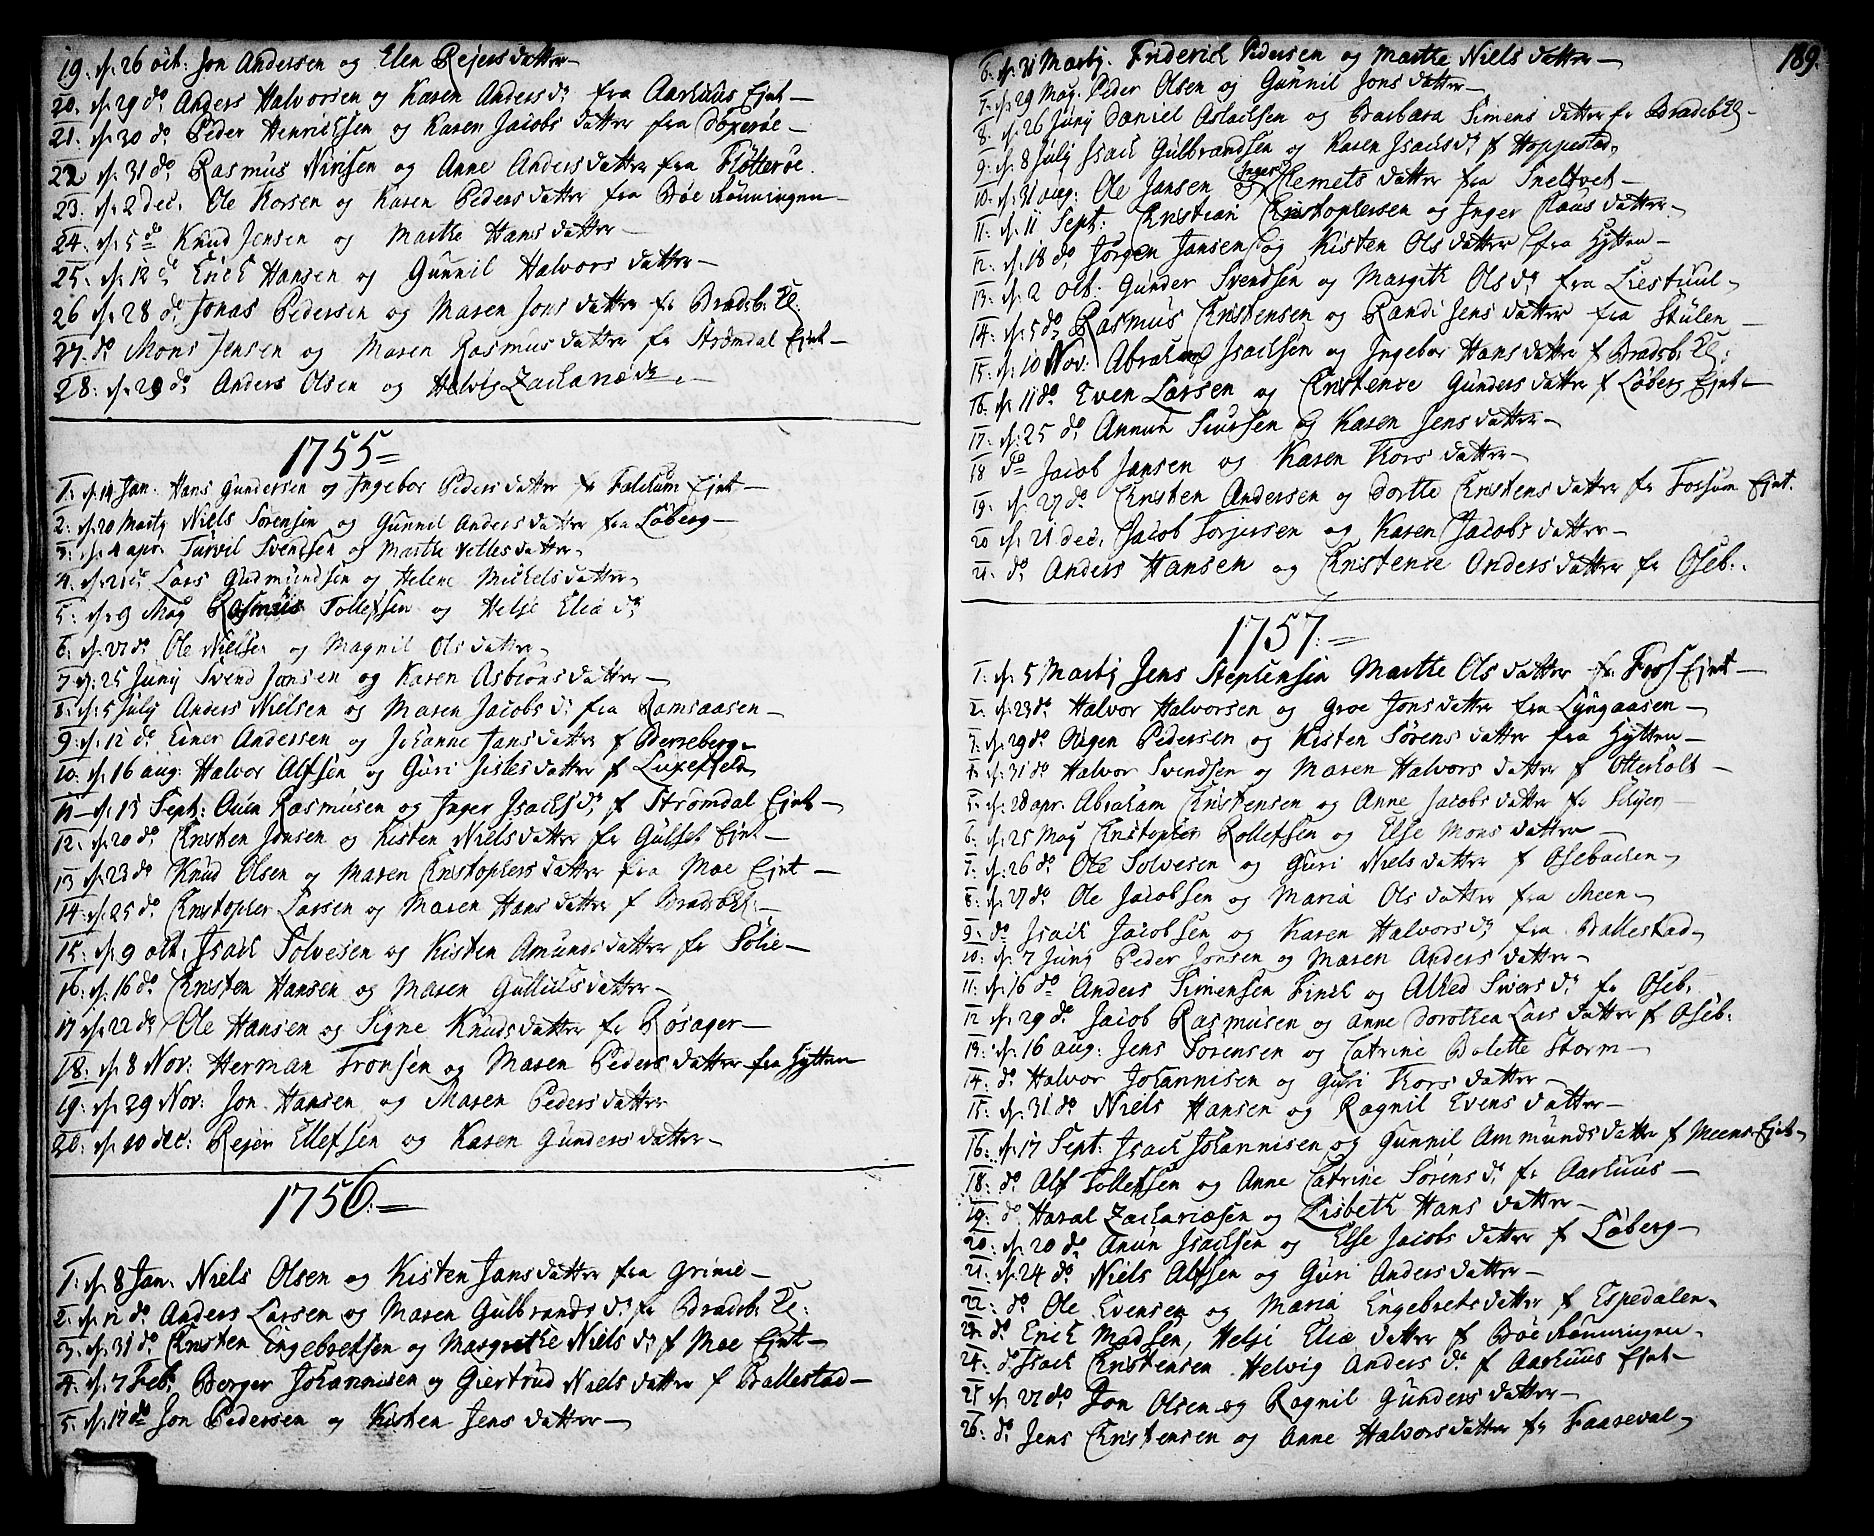 19. d. 26 oct: Jon Andersen og Elen Rejersdatter
20. d. 29 do Anders Halvorsen og Karen Andersd: fra Aarhuus Ejet
21. d. 30 do Peder Henrichsen og Karen Jacobs datter fra
22 d. 31 do Rasmus Nirisen og Anne Anders datter fra Flötteröe.
23. d. 2 dec. Ole Thorsen og Karen Peders datter fra Böe Rönningen
24. d. 5 do Knud Jensen og Marthe Hans datter
25. d. 12 do Erich Hansen og Gunnil Halvors datter
26 d. 28 do Jonas Pedersen og Maren Jons datter fr Bradsb. Kl:
27. do Mons Jensen og Maren Rasmus datter fr Strömdal Ejet
28. d. 29 do Anders Olsen og Helvig Zachariæ dr
1755
1. d. 14 Jan. Hans Gundersen og Ingebor Peders datter fr Falckum Ejet
2. d. 20 Martij Niels Sörensen og Gunnil Anders datter fra Löberg
3. d. 4 apr. Turvil Svendsen og Marthe Velles datter
4. d. 21 do Lars Gudmundsen og Helene Michels datter
5. d. 9 Maj Rasmus Tollefsen og Helje Eliæ dr
6. d. 27 do Ole Nielsen og Magnil Ols datter
7 d. 25 Junij Svend Jansen og Karen Asbiöns datter
8. d. 5 Julij Anders Nielsen og Maren Jacobs dr fra Ramsaasen
9. d. 12 do Einer Andersen og Johanne Jans datter f Berreberg
10. d. 16 aug: Halvor Alfsen og Guri Gisles datter f Luxefjeld
11 d. 13 Sept: Auen Rasmusen og Inger Isachs dr f Strömdal Ejet
12. d. 20 do Christen Jonsen og Kisten Niels datter fr Gulset Ejet
13 d. 23 do Knud Olsen og Maren Christophers datter fra Moe Ejet
14. d. 25 do Christopher Larsen og Maren Hans datter f Bradsb Kl:
15. d. 9 oct. Isach Solvesen og Kisten Amunds datter fr Folie
16. d. 16 do Christen Hansen og Maren Gullichs datter
17 d. 22 do Ole Hansen og Signe Knuds datter fr Rösager
18. d. 8 Nov: Herman Tronsen og Maren Peders datter fra Hytten
19. d. 29 Nov: Jon Hansen og Maren Peders datter
20. d. 10 dec: Rejer Ellefsen og Karen Gunders datter
1756
1. d. 8 Jan. Niels Olsen og Kisten Jans datter fra Grinie
2. d. 12 do Anders Larsen og Maren Gulbrands dr fr Bradsb. Kl:
3. d. 31 do Christen Engebretsen og Margrethe Niels dr f Moe Ejet
4. d. 7 Feb. Berger Johannisen og Giertrud Niels datter f Ballestad
5. d. 17 do Jon Pedersen og Kisten Jens datter
189.
6. d. 21 Martij. Friderich Pedersen og Marthe Niels datter
7. d. 29 Maj. Peder Olsen og Gunnil Jons datter
8. d. 26 Junij Daniel Aslachsen og Barbara Simens datter fr Bradsb Kl
9. d. 8 Julij Isach Gulbrandsen og Karen Isachs dr f Hoppestad
10. d. 31 aug: Ole Jansen og Inger Clemets datter fra Sneltvet
11. d. 11 Sept: Christian Christophersen og Inger Claus datter
12. d. 18 do Jörgen Jansen og Kisten Ols datter fra Hytten
13. d. 2 oct: Gunder Svendsen og Margith Ols dr fra Liestuul
14. d. 5 do Rasmus Christensen og Randi Jens datter fra Stulen
15. d. 10 Nov: Abraham Isachsen og Ingebor Hans datter f Bradsb. Kl:
16. d. 11 do Even Larsen og Christence Gunders datter f Löberg Ejet
17. d. 25 do Annun Siursen og Karen Jens datter
18 do Jacob Jansen og Karen Thors datter
19. d. 27 do Christen Andersen og Dorthe Christens datter fr Fossum Ejet.
20 d. 21 dec. Jacob Torjersen og Karen Jacobs datter
21. do Anders Hansen og Christence Anders datter fr Oseb.
1757
1. d. 5 Martij Jens Stephensen Marthe Ols datter fr Fosf Ejet
2. d. 23 do Halvor Halvorsen og Groe Jons datter fra Lyngaasen
3. d. 29 do Aagen Pedersen og Kisten Sörens datter fra Hytten
4. d. 31 do Halvor Svendsen og Maren Halvors datter f Otterholt
5. d. 28 apr. Abraham Christensen og Anne Jacobs datter fr Siljen
6. d. 25 Maj Christopher Rollefsen og Else Mons datter
7. d. 26 do Ole Solvesen og Guri Niels datter f Osebachen
8. d. 27 do Ole Jacobsen og Maria Ols datter fra Meen
9. do Isach Jacobsen og Karen Halvors dr fra Ballestad
10. d. 7 Junij Peder Jonsen og Maren Anders datter
11. d. 16 do Anders Simensen Finch og Alhed Sivers dr fr Oseb.
12 d. 29 do Jacob Rasmusen og Anne Dorothea Lars datter f Oseb:
13. d. 16 aug: Jens Sörensen og Catrine Bolette Storm
14. do Halvor Johannisen og Guri Thors datter
15. d. 31 do Niels Hansen og Ragnil Evens datter
16. d. 17 Sept: Isach Johannisen og Gunnil Ammunds datter f Meens Ejet
18. do Alf Tollefsen og Anne Catrine Sörens dr fr Aarhuus
19. do Haral Zachariæsen og Lisbeth Hans datter
20. d. 20 do Anun Isachsen og Else Jacobs datter f Löberg
21. d. 24 do Niels Alfsen og Guri Anders datter
22. do Ole Evensen og Maria Engebrets datter f Espedalen
23. do Erich Madsen, Helje Eliæ datter f Böe Rönningen
24. do Isach Christensen Helvig Anders dr f Aarhuus Ejet
25 d. 27 do Jon Olsen og Ragnil Gunders datter
26. do Jens Christensen og Anne Halvors datter fr Faareval